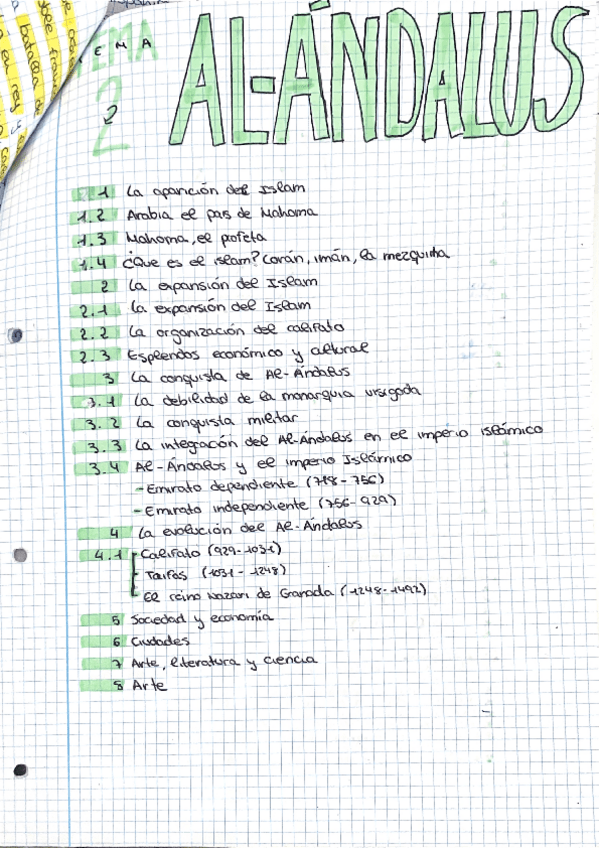 TEMA 2
AL-ÁNDALUS
1 La aparición del Islam
1.2 Arabia el pais de Mahoma
1.3 Mahoma, el profeta
1.4 ¿Que es el islam? Corán, imán, la mezquita
2 La expansión del Islam
2.1 La expansión del Islam
2.2 La organización del califato
2.3 Esplendos económico y cultural
3 La conquista de Al-Ándalus
3.1 La debilidad de la monarquia visigoda
3.2 La conquista militar
3.3 La integración del Al-Ándalus en el imperio islámico
3.4 Al-Ándalus y el imperio Islámico
- Emirato dependiente (718-756)
- Emirato independiente (756-929)
4 La evolución del Al-Ándalus
4.1 Califato (929-1031)
Taifas (1031-1248)
El reino nazari de Granada (1248-1492)
5 Sociedad y economía
6 Ciudades
7 Arte, literatura y ciencia
8 Arte